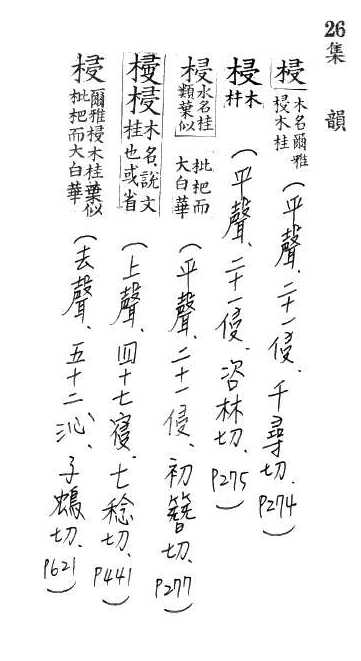 26集 韻
梫 木名爾雅梫木桂 (平聲、二十一侵、千尋切. P274)
梫 木枓 (平聲、二十一侵、咨林切. P275)
梫 水名桂類葉似枇杷而大白華 (平聲、二十一侵、初簪切. P277)
梫 木名說文桂也或省 (上聲、四十七寑、七稔切. P441)
梫 爾雅梫木桂葉似枇杷而大白華 (去聲、五十二沁、子鴆切. P621)